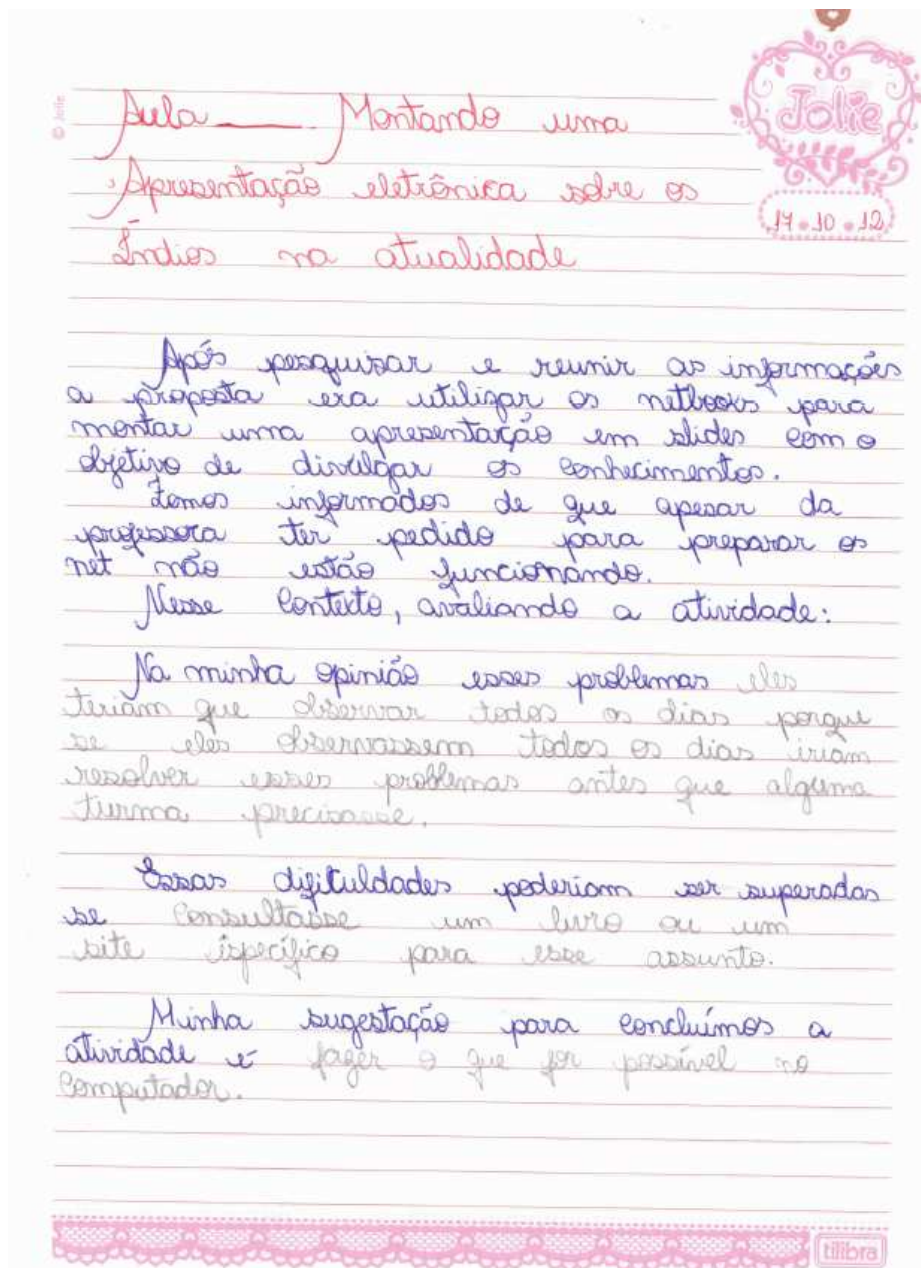 Jolie
© Jolie
17.10.12
Aula ____ Montando uma
Apresentação eletrônica sobre os
Índios na atualidade
Após pesquisar e reunir as informações
a proposta era utilizar os netbooks para
montar uma apresentação em slides com o
objetivo de divulgar os conhecimentos.
Fomos informados de que apesar da
professora ter pedido para preparar os
net não estão funcionando.
Nesse contexto, avaliando a atividade:
Na minha opinião esses problemas eles
teriam que observar todos os dias porque
se eles observassem todos os dias iriam
resolver esses problemas antes que alguma
turma precisasse.
Essas dificuldades poderiam ser superadas
se consultasse um livro ou um
site ispecífico para esse assunto.
Minha sugestação para concluímos a
atividade é fazer o que for possível no
computador.
tilibra